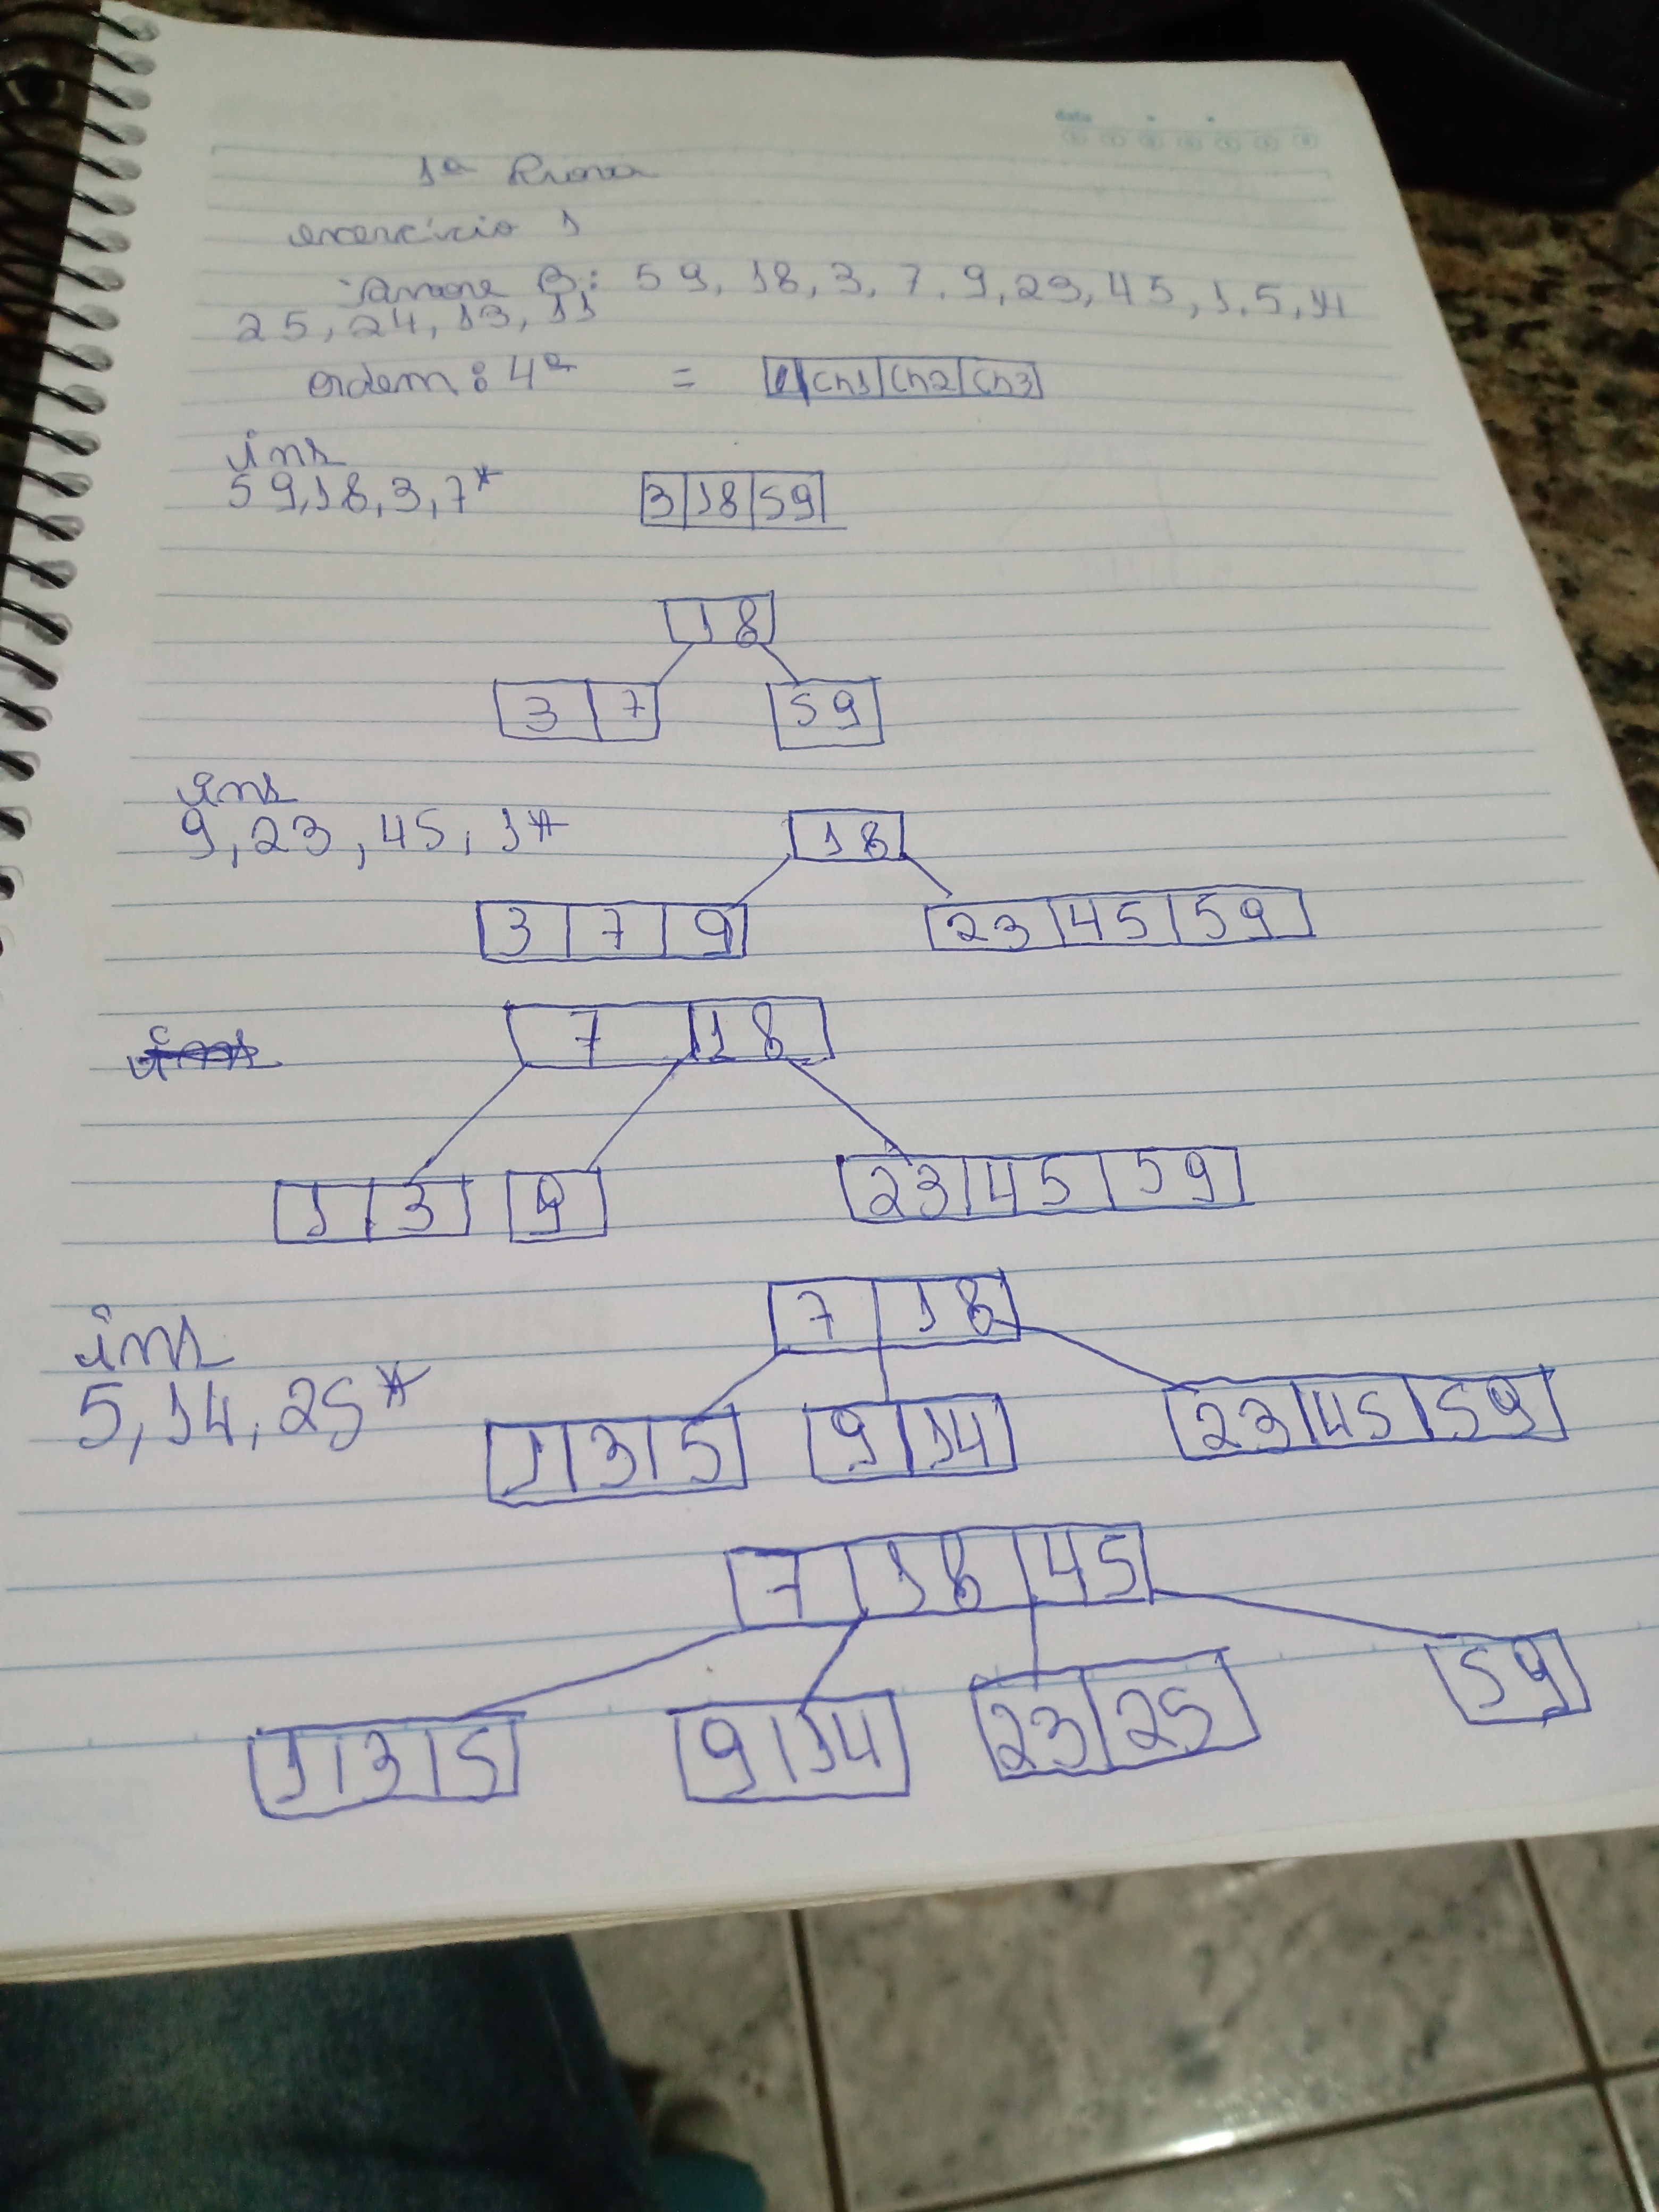 1ª Prova
exercício 1
árvore B: 59, 18, 3, 7, 9, 23, 45, 1, 5, 14
25, 24, 13, 11
ordem: 4ª = Ch1 Ch2 Ch3
ins
59, 18, 3, 7* 3 18 59
18
3 7 59
ins
9, 23, 45, 1* 18
3 7 9 23 45 59
7 18
1 3 9 23 45 59
ins 7 18
5, 14, 25* 1 3 5 9 14 23 45 59
7 18 45
1 3 5 9 14 23 25 59